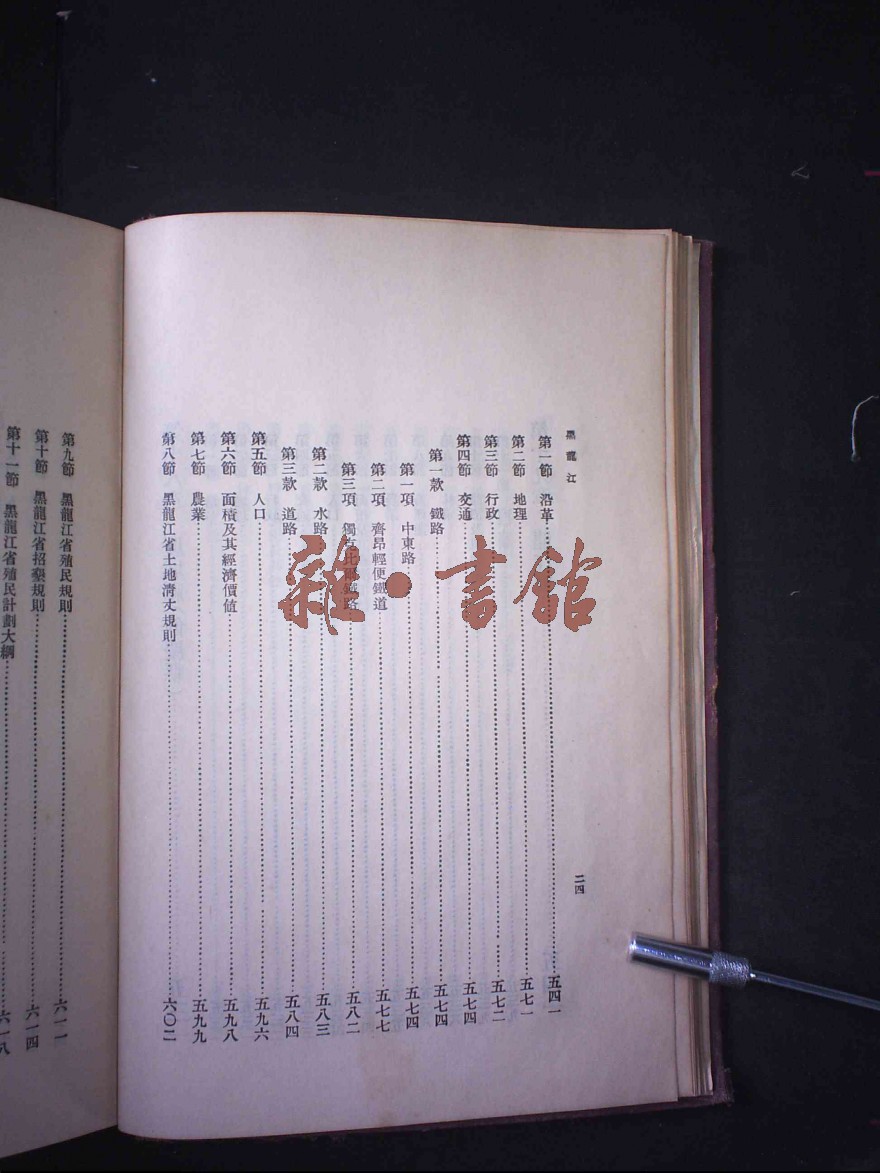 黑龍江
二四
第一節 沿革……五四一
第二節 地理……五七一
第三節 行政……五七二
第四節 交通……五七四
第一款 鐵路……五七四
第一項 中東路……五七四
第二項 齊昂輕便鐵道……五七七
第三項 獨立 鐵路……五八二
第二款 水路……五八三
第三款 道路……五八四
第五節 人口……五九六
第六節 面積及其經濟價値……五九八
第七節 農業……五九九
第八節 黑龍江省土地淸丈規則……六〇二
第九節 黑龍江省殖民規則……六一一
第十節 黑龍江省招墾規則……六一四
第十一節 黑龍江省殖民計劃大綱……六一八
雜·書館